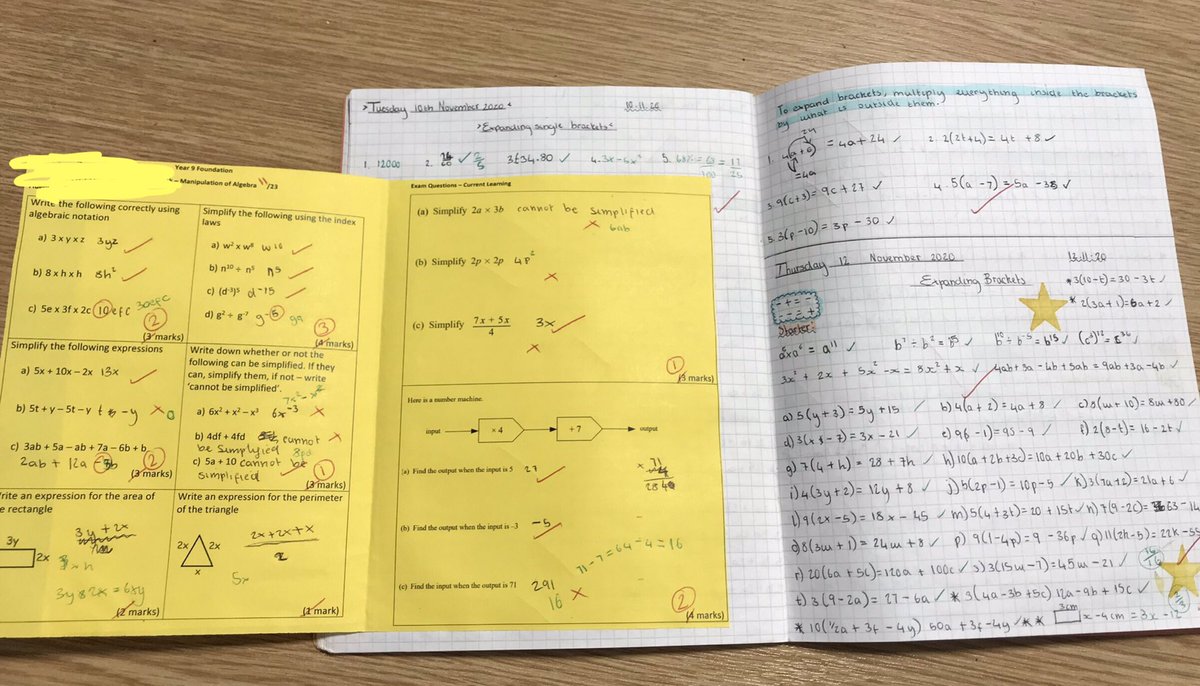 Year 9 Foundation
- Manipulation of Algebra 11/23
Write the following correctly using
algebraic notation
a) 3 x y x z 3yz
b) 8 x h x h 8h²
c) 5e x 3f x 2c 10efc 30efc
2
(3 marks)
Simplify the following using the index
laws
a) w² x w⁸ w¹⁰
b) n¹⁰ ÷ n⁵ n⁵
c) (d⁻³)⁵ d⁻¹⁵
d) g² ÷ g⁻⁷ g⁻⁵ g9
3
(4 marks)
Simplify the following expressions
a) 5x + 10x – 2x 13x
b) 5t + y – 5t – y -y 0
c) 3ab + 5a – ab + 7a – 6b + b
2ab + 12a
2
(3 marks)
Write down whether or not the
following can be simplified. If they
can, simplify them, if not – write
'cannot be simplified'.
a) 6x² + x² – x³ 6x⁻³
b) 4df + 4fd cannot
be simplyfied
c) 5a + 10 cannot be
simplified
1
(3 marks)
rite an expression for the area of
e rectangle
3y
2x
3y + 2x
3y x 2x = 6xy
(2 marks)
Write an expression for the perimeter
of the triangle
2x 2x
x
2x + 2x + x
2
5x
(1 mark)
Exam Questions – Current Learning
(a) Simplify 2a × 3b cannot be simplified
6ab
(b) Simplify 2p × 2p 4p²
(c) Simplify 7x + 5x
4
3x
1
(3 marks)
Here is a number machine.
input × 4 + 7 output
(a) Find the output when the input is 5 27
71
284
(b) Find the output when the input is –3 -5
71-7=64÷4=16
(c) Find the input when the output is 71 291
16
2
(4 marks)
Tuesday 10th November 2020 10.11.20
Expanding single brackets
1. 12000 2. 3. £34.80 5.
To expand brackets, multiply everything inside the brackets
by what is outside them.
24
1. 4(a+6) = 4a + 24 2. 2(2t+4) = 4t + 8
= 4a
3. 9(c+3) = 9c + 27 4. 5(a - 7) = 5a - 35
5. 3(p-10) = 3p - 30
Thursday 12 November 2020
Expanding Brackets
* 3(10-t) = 30 - 3t
* 2(3a+1) = 6a + 2
- + = -
- - = +
Starter
a⁵xa⁶ = a¹¹
3x² + 2x + 5x² - x = 8x² + x 4ab + 3a - 4b + 5ab = 9ab + 3a - 4b
a) 5(y+3) = 5y + 15 b) 4(a+2) = 4a + 8 c) 8(m+10) = 8m + 80
d) 3(x-7) = 3x - 21 f) 2(8-t) = 16 - 2t
g) 7(4+h) = 28 + 7h h) 10(a+2b+3c) = 10a + 20b + 30c
i) 4(3y+2) = 12y + 8 j) 5(2p-1) = 10p - 5 k) 3(7a+2) = 21a + 6
l) 9(2x-5) = 18x - 45 m) 5(4+3t) = 20 + 15t n) 7(9-2c) = 63 - 14
o) 8(3m+1) = 24m + 8 p) 9(1-4p) = 9 - 36p q) 11(2k-5) = 22k - 55
r) 20(6a+5c) = 120a + 100c s) 3(15m-7) = 45m - 21
t) 3(9-2a) = 27 - 6a * 3(4a-3b+5c) 12a - 9b + 15c
* 10(½a + 3f - 4y) 50a + 3f - 4y * * 3cm x-4cm = 3x - 12